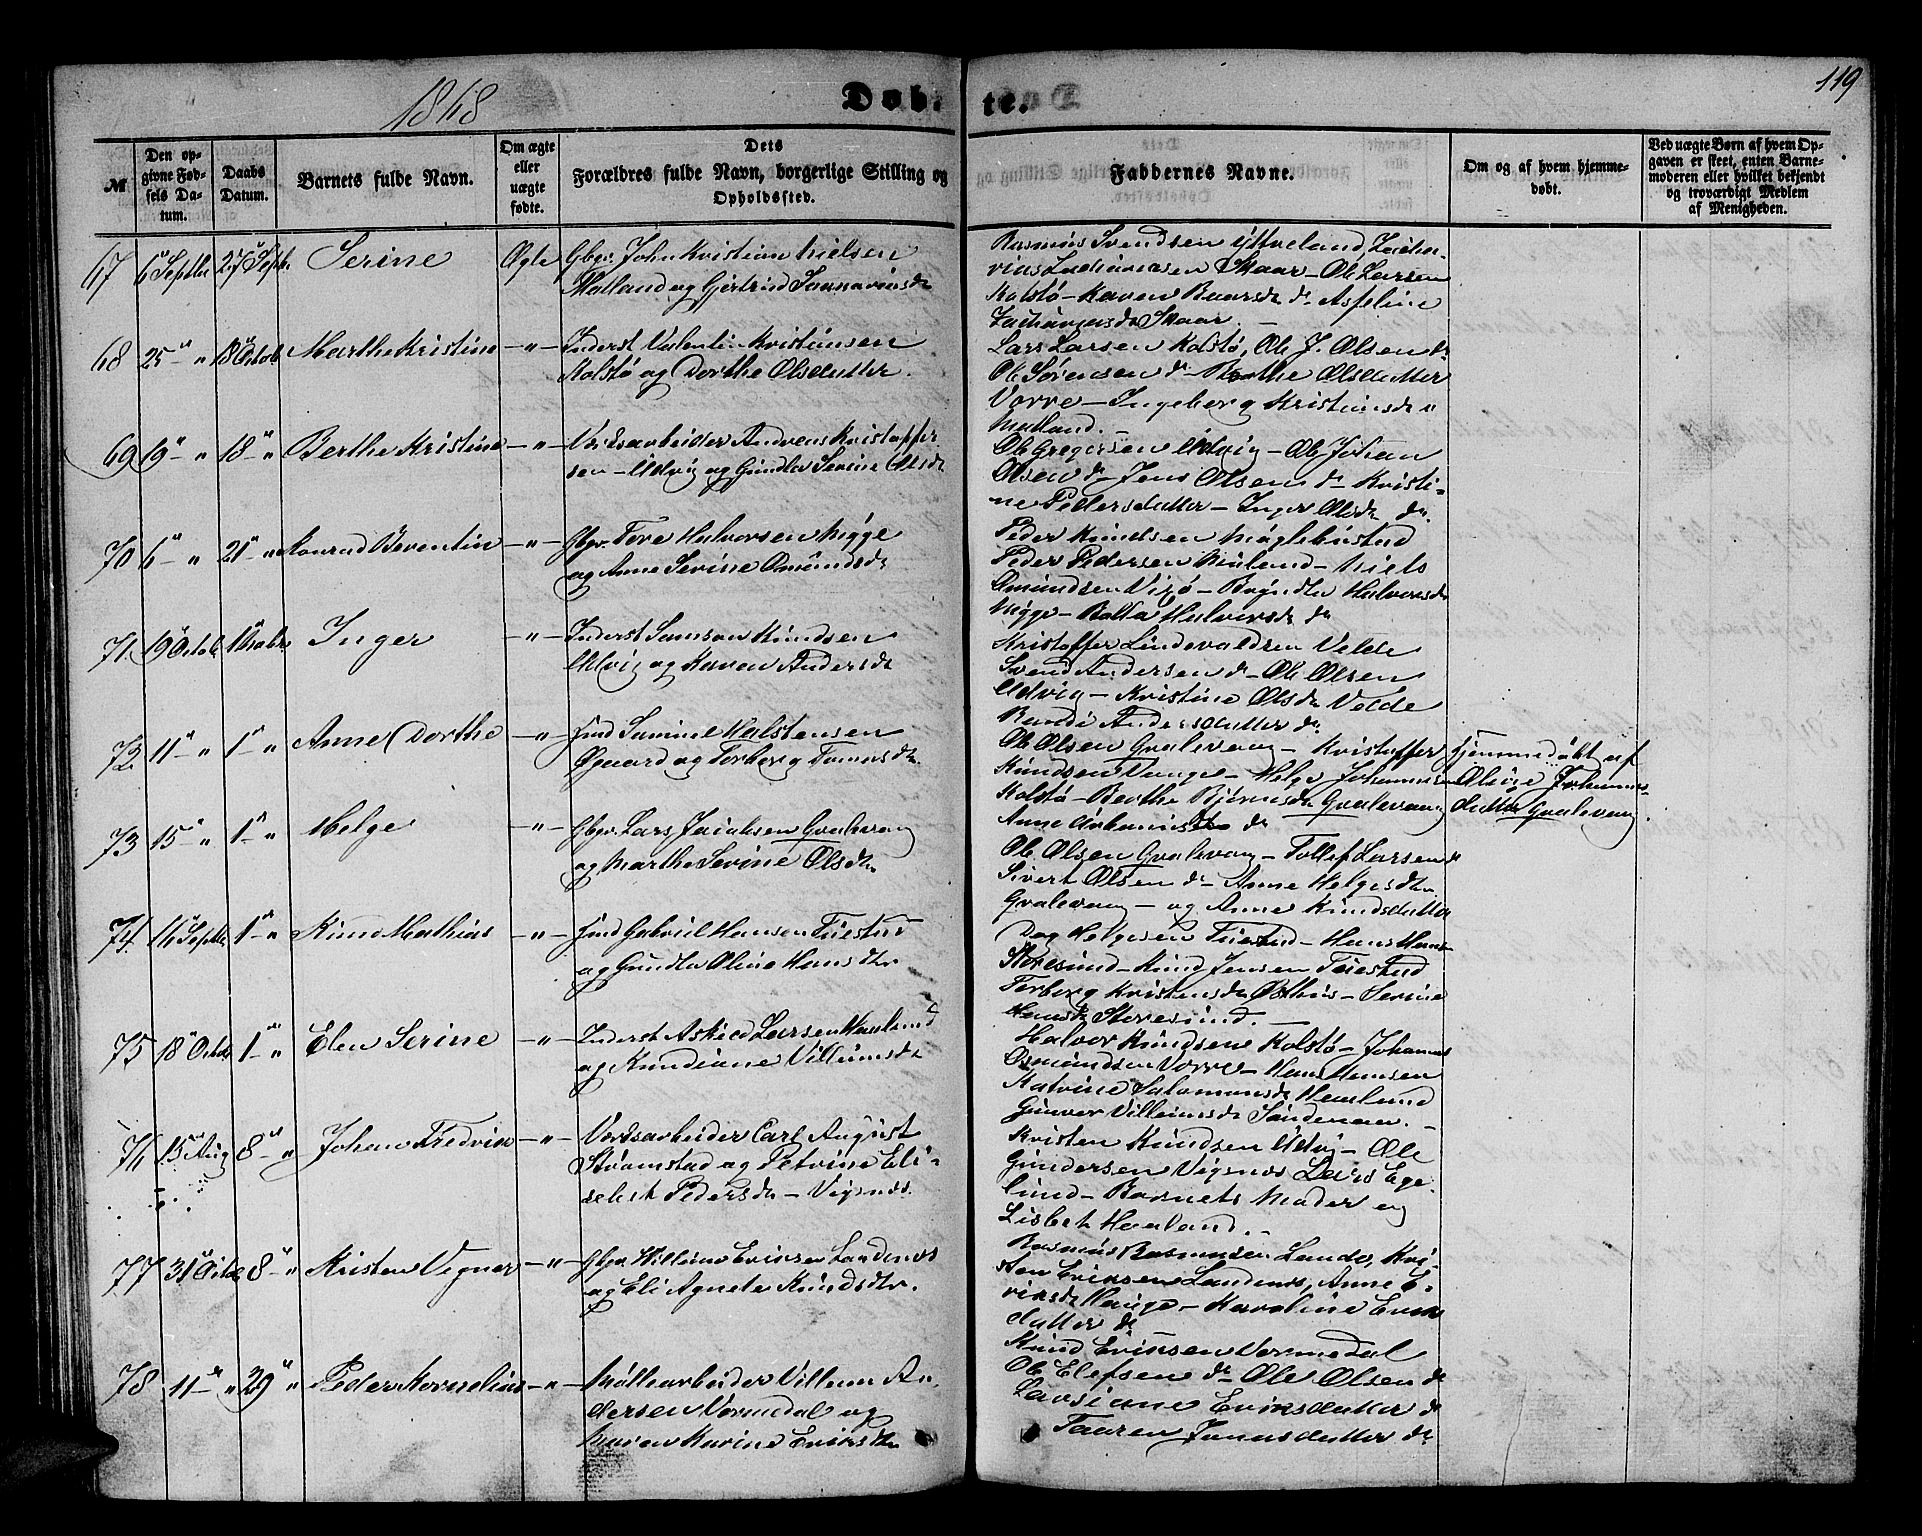 1868
Døbte.
119
№
Den opgivne Fødsels Datum.
Daabs Datum.
Barnets fulde Navn.
Om ægte eller uægte fødte.
Dets Forældres fulde Navn, borgerlige Stilling og Opholdssted.
Faddernes Navne.
Om og af hvem hjemmedøbt.
Ved uægte Børn af hvem Opgaven er skeet, enten Barnemoderen eller hvilket bekjendt og troværdigt Medlem af Menigheden.
67 6 Septbr 27 Septb. Serine Ægte Gbgr. John Kristian Nielsen
Østland og Gjertrud
Rasmus Svendsen Ytreland, Zacha-
rias Zachariassen Skaar - Ole Larsen
Kolstø - Karen Baarsdr do Aspeline
Zachariasdr Skaar. -
68 25 - " 18 Octob. Marthe Kristine - " - Inderst Valentin Kristiansen
Kolstø og Dorthe Olsdatter.
Lars Larsen Kolstø, Ole J. Olsen do
Ole Sørensen do - Marthe Olsdatter
Vorre - Ingeborg Kristiansdr
Mæland. -
69 19 - " 18 - " Berthe Kristine - " - Værksarbeider Andreas Kristoffer-
sen - Udvig og Gundla Serine Olsdr
Ole Gregersen Udvig - Ole Johan
Olsen do - Jens Olsen do - Kristi-
ne Pedersdatter - Inger Olsdr do.
70 6 - " 21 - " Konrad Berentin - " - Gbgr. Tore Halvorsen Mygge
og Anne Serine Omundsdr
Peder Knudsen Møglebustad
Peder Pedersen Niland - Niels
Omundsen - Halvorsdr
Mygge - Halvorsdr do
71 19 Octob. 1 Novbr Inger - " - Inderst Samson Knudsen
Udvig og Karen Andersdr
Kristoffer Lindevaldsen Velde
Svend Andersen do - Ole Olsen
Udvig - Kristine Olsdr Velde
Randi Andersdatter do
72 11 - " 1 - " Anne Dorthe - " - Ind Samuel Halstensen
Øgaard og Torborg Tomasdtr
Ole Olsen Gralevang - Kristoffer
Knudsen Vange - Helge Johannesen
Kolstø - Berthe Bjørnsdr Gralevang
Anne do
Hjemmedøbt af
Johannes-
datter Gralevang.
73 15 - " 1 - " Helge - " - Gbgr. Lars Jacobsen Gralevang
og Marthe Serine Olsdtr
Ole Olsen Gralevang - Tollef Larsen do
Sivert Olsen do - Anne Helgesdtr
Gralevang - og Anne Knudsdatter
74 16 Septbr 1 - " Knud Mathias - " - Ind Gabriel Hansen Tuestad
og Gundla Oline Hansdtr
Dag Helgesen Tuestad - Hans Hans-
Storesund - Knud Jensen Tuestad
Torborg Kristensdr Østhus - Serine
Hansdr Storesund. -
75 18 Octob 1 - " Elen Serine - " - Inderst Askild Larsen Haaland
og Knudiane Villumsdr
Halvor Knudsen Kolstø - Johannes
Osmundsen Vorre - Hans Hansen
Katrine Salomonsdr Haaland
Gunvor Villumsdr Søndenaa. -
76 15 Aug 8 - " Johan Fredrik - " - Værksarbeider Carl August
Strømstad og Petrine Eli-
sebet Pedersdr - Vigsnæs.
Kristen Knudsen Udvig - Ole
Gundersen Vigsnæs Lars Ege-
lund - Barnets Moder og
Lisbet Haaland. -
77 31 Octob 8 - " Kristen Vegner - " - Gbgr. Willum Eriksen Landenæs
og Eli Agnete Knudsdtr.
Rasmus Rasmussen Lande, Kri-
sten Eriksen Landenæs, Anne E-
riksdr Hauge - Karoline Eriks
datter do
78 11 - " 29 " Peder Kornelius - " - Mølliarbeider Villum An-
dersen Vormedal og
Maren Karine Eriksdtr
Knud Eriksen Vormedal
Ole Elefsen do - Ole Olsen do
Larsiane Eriksdatter do
Taaren Jonasdatter do